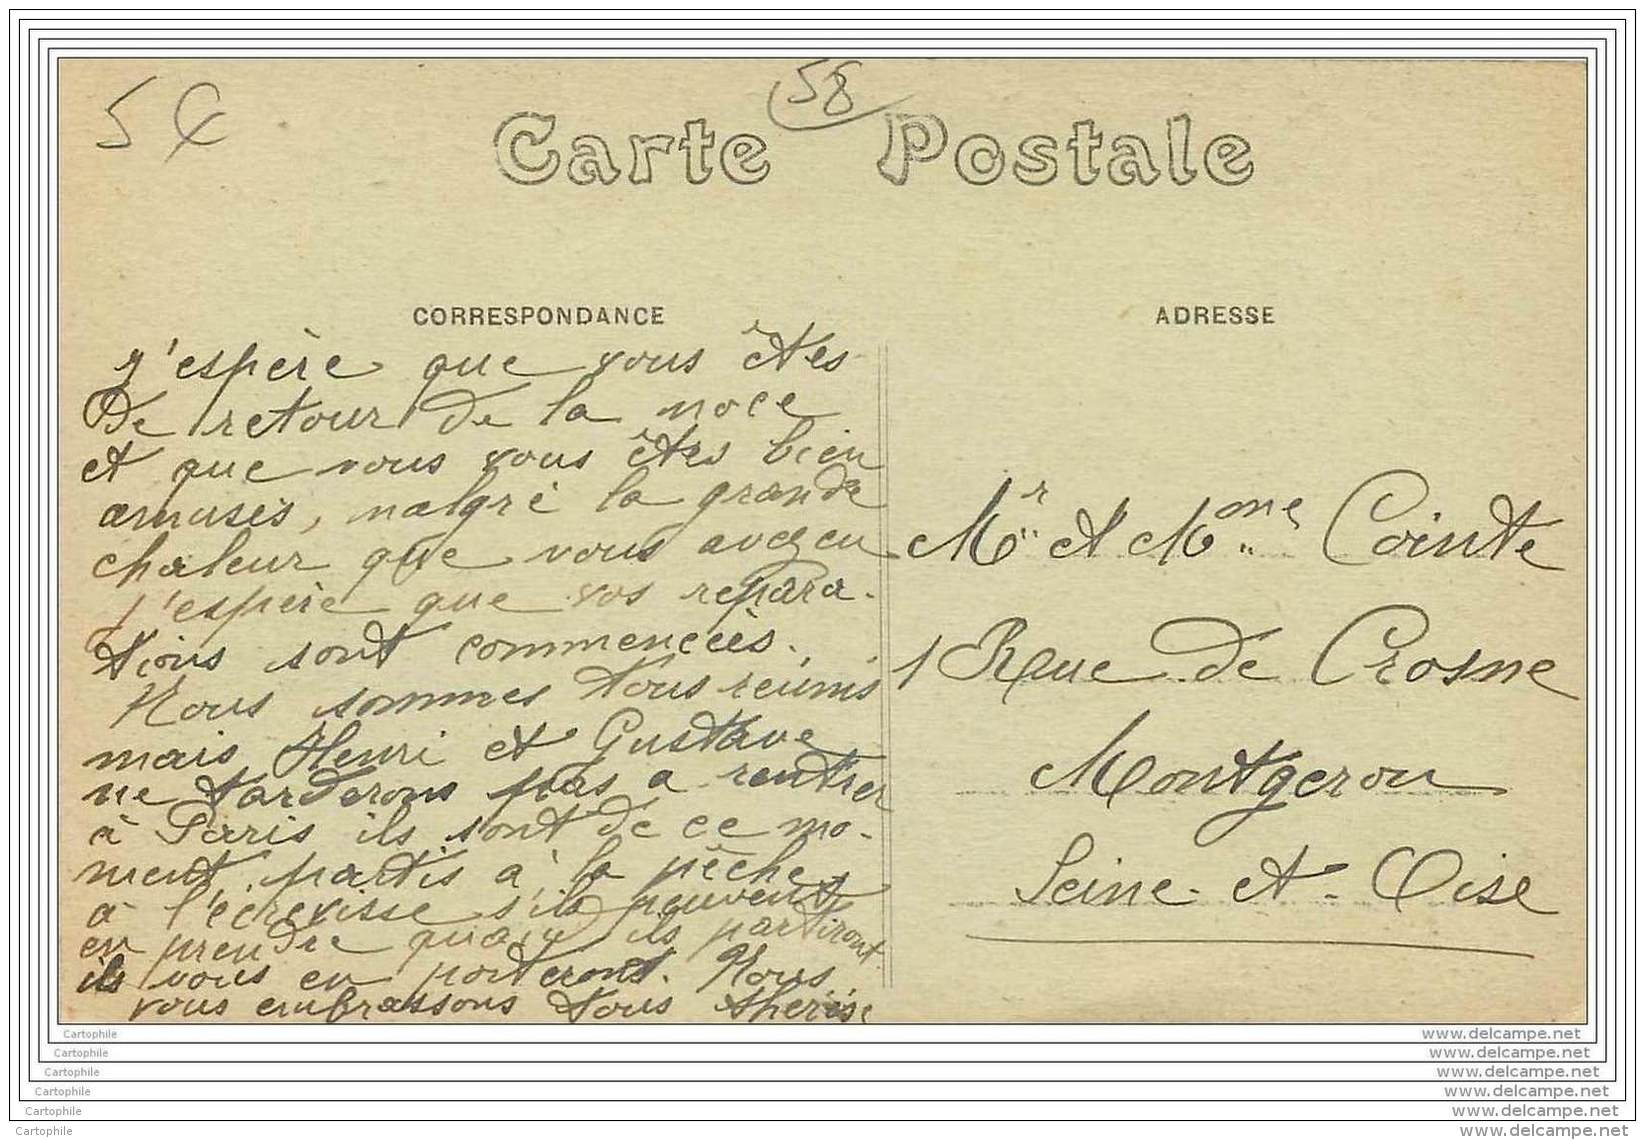 58
5 €
Carte Postale
CORRESPONDANCE
j'espère que vous êtes
De retour De la noce
et que vous vous êtes bien
amusés, malgré la grande
chaleur que vous avez eu
j'espère que vos répara-
tions sont commencées.
Nous sommes tous réunis
mais Henri et Gustave
ne tarderons pas a rentrer
à Paris ils sont de ce mo-
ment partis à la pêche
à l'écrevisse s'ils peuvent
en prendre quand ils partiront
ils vous en porteront. Nous
vous embrassons tous thérèse
ADRESSE
Mr et Mme Cointe
1 Rue de Crosne
Montgeron
Seine-et-Oise
Cartophile
Cartophile
Cartophile
Cartophile
Cartophile
Cartophile
www.delcampe.net
www.delcampe.net
www.delcampe.net
www.delcampe.net
www.delcampe.net
www.delcampe.net